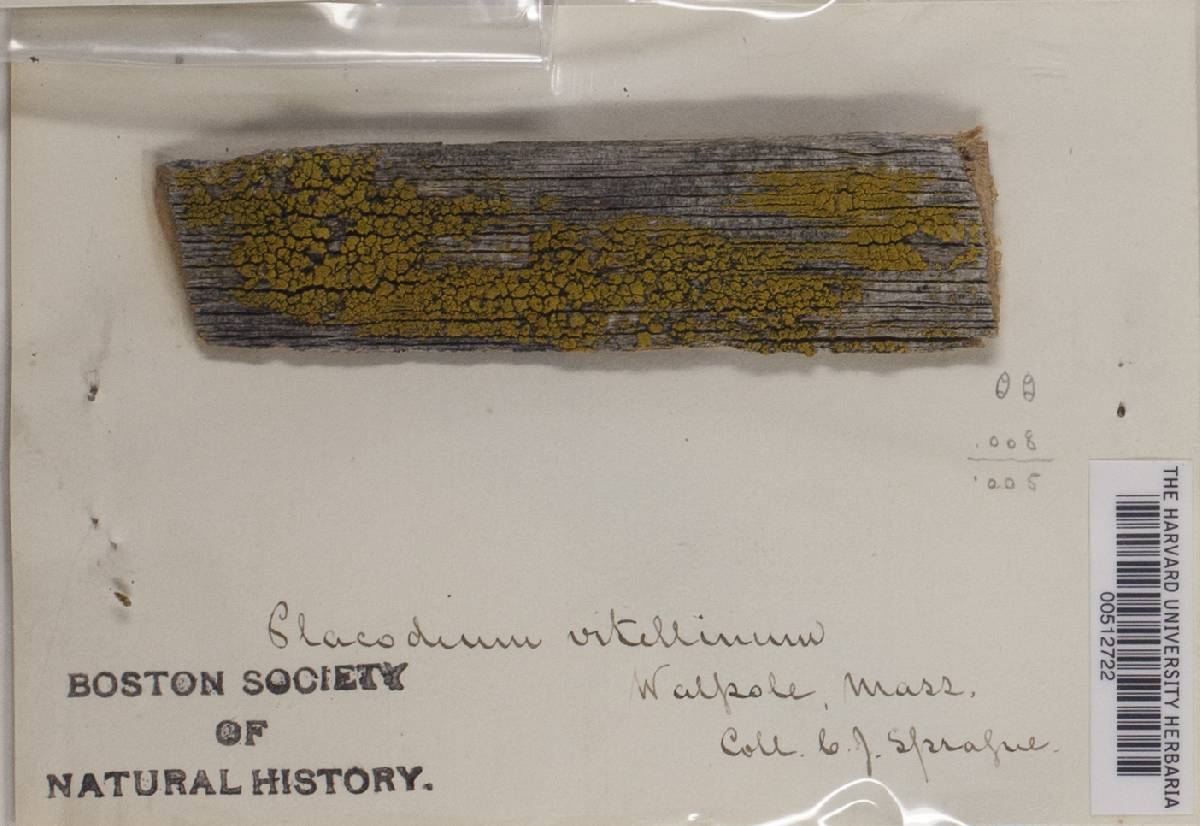 .008
.005
Placodium vitellinum
BOSTON SOCIETY
OF
NATURAL HISTORY.
Walpole, Mass.
Coll. C. J. Sprague.
THE HARVARD UNIVERSITY HERBARIA
00512722